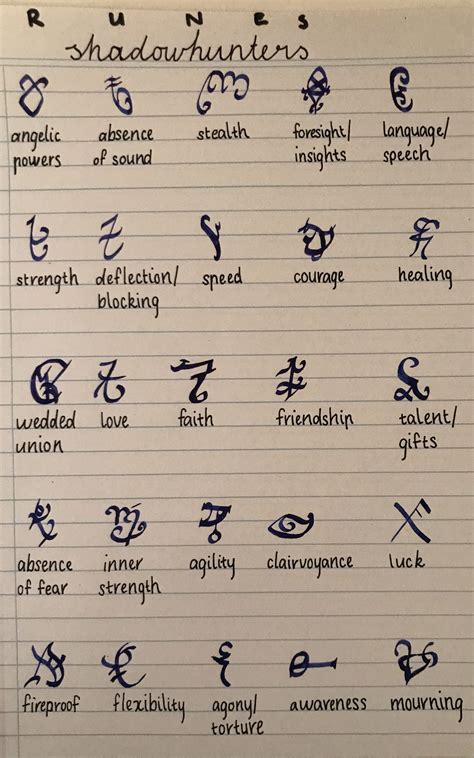 R U N E S
shadowhunters
angelic absence stealth foresight/ language/
powers of sound insights speech
strength deflection/ speed courage healing
blocking
wedded love faith friendship talent/
union gifts
absence inner agility clairvoyance luck
of fear strength
fireproof flexibility agony/ awareness mourning
torture